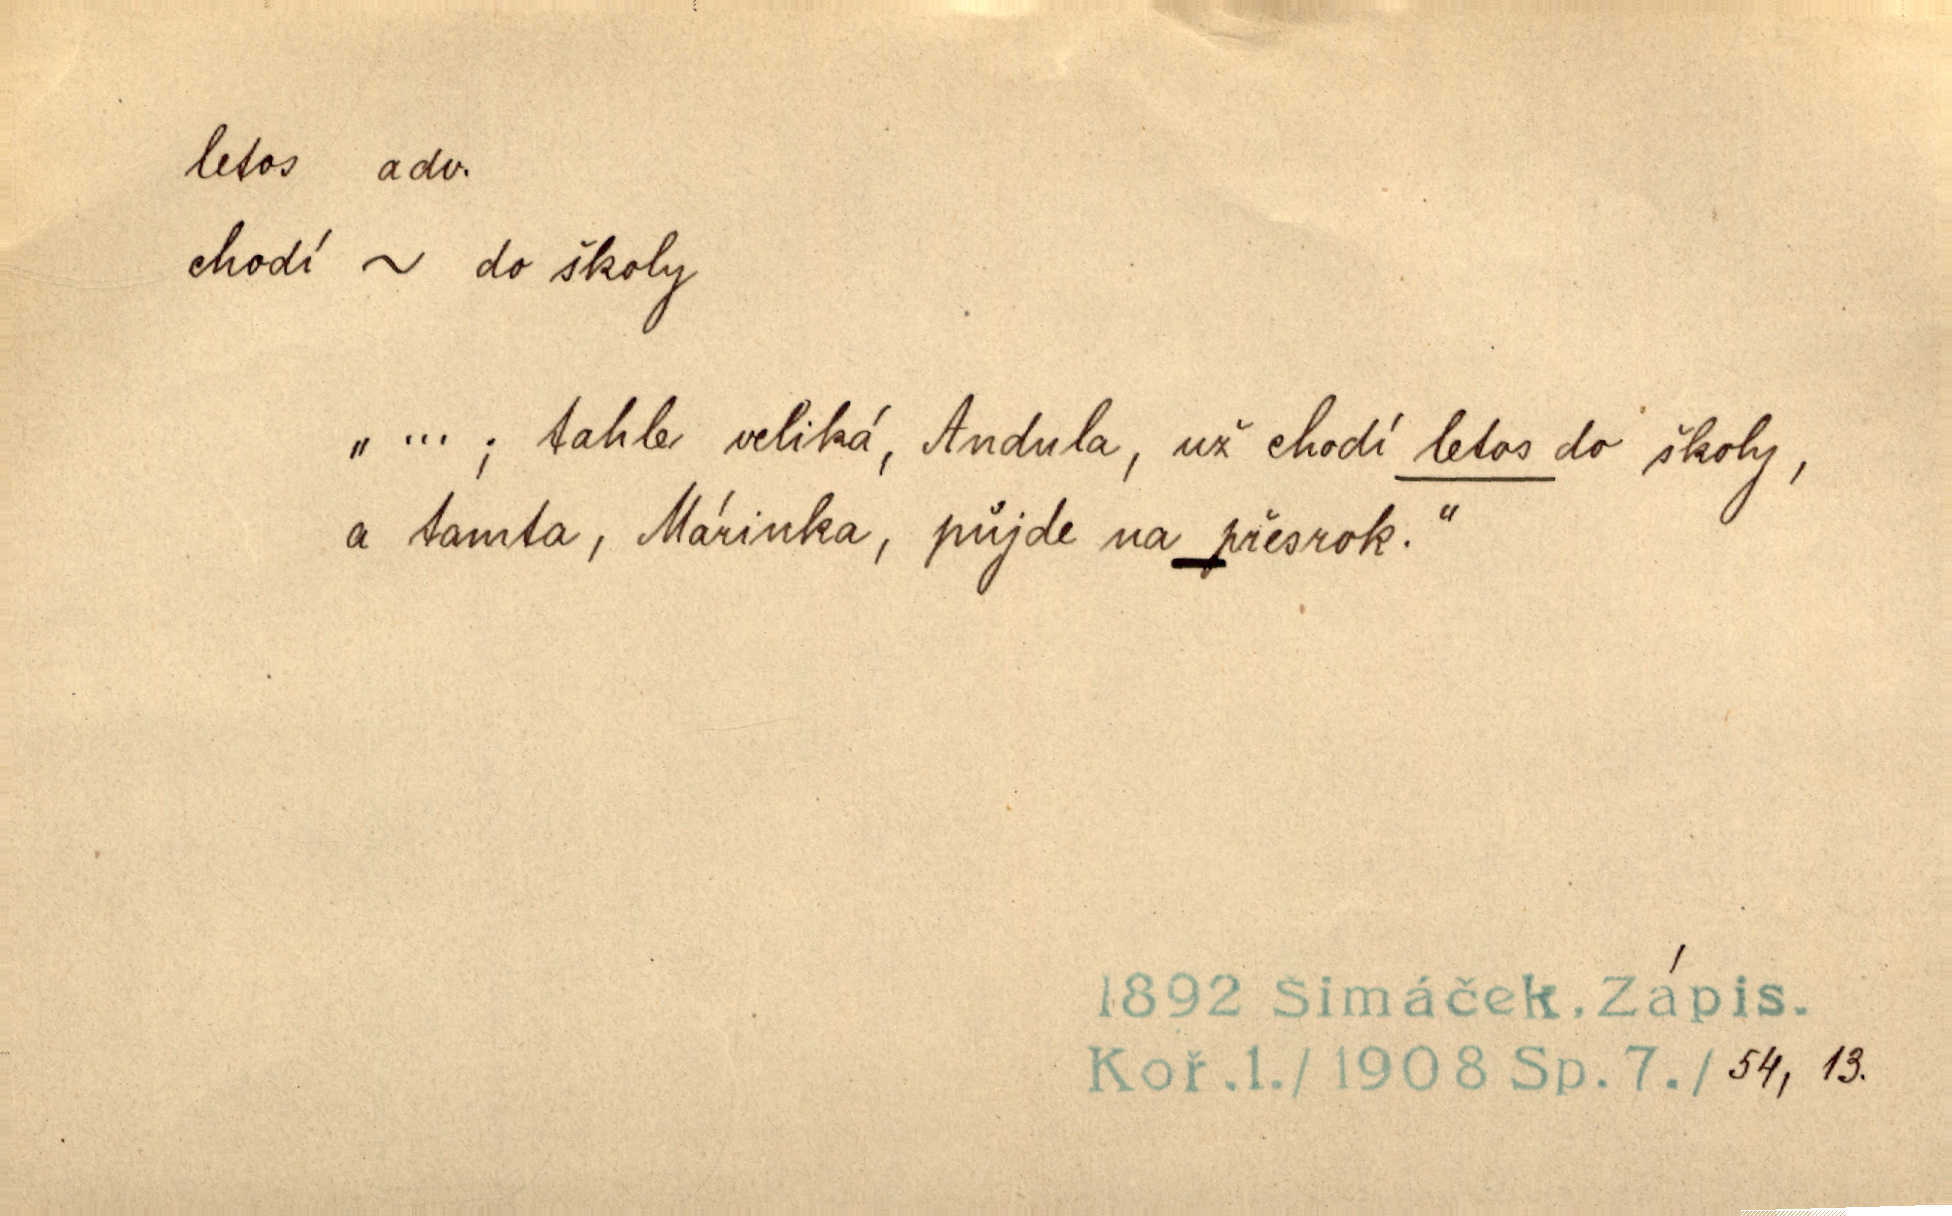 letos adv.
chodí ~ do školy
„ ... ; tahle veliká, Andula, už chodí letos do školy,
a tamta, Márinka, půjde na přesrok.“
1892 Šimáček. Zápis.
Koř.1./1908 Sp.7./ 54, 13.